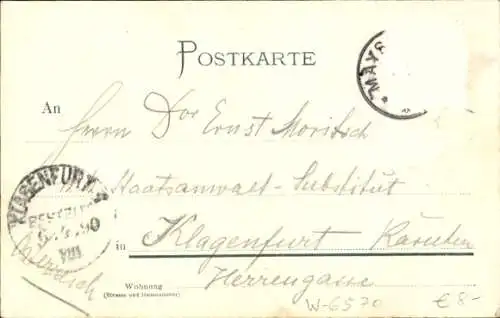 POSTKARTE
An
Herrn Dor Ernst Moritsch
Staatsanwalt-Substitut
in Klagenfurt Kärnten
Herrengasse
Wohnung
(Strasse und Hausnummer)
KLAGENFURT
BESTELLT
VIII
W-6570
€ 8-